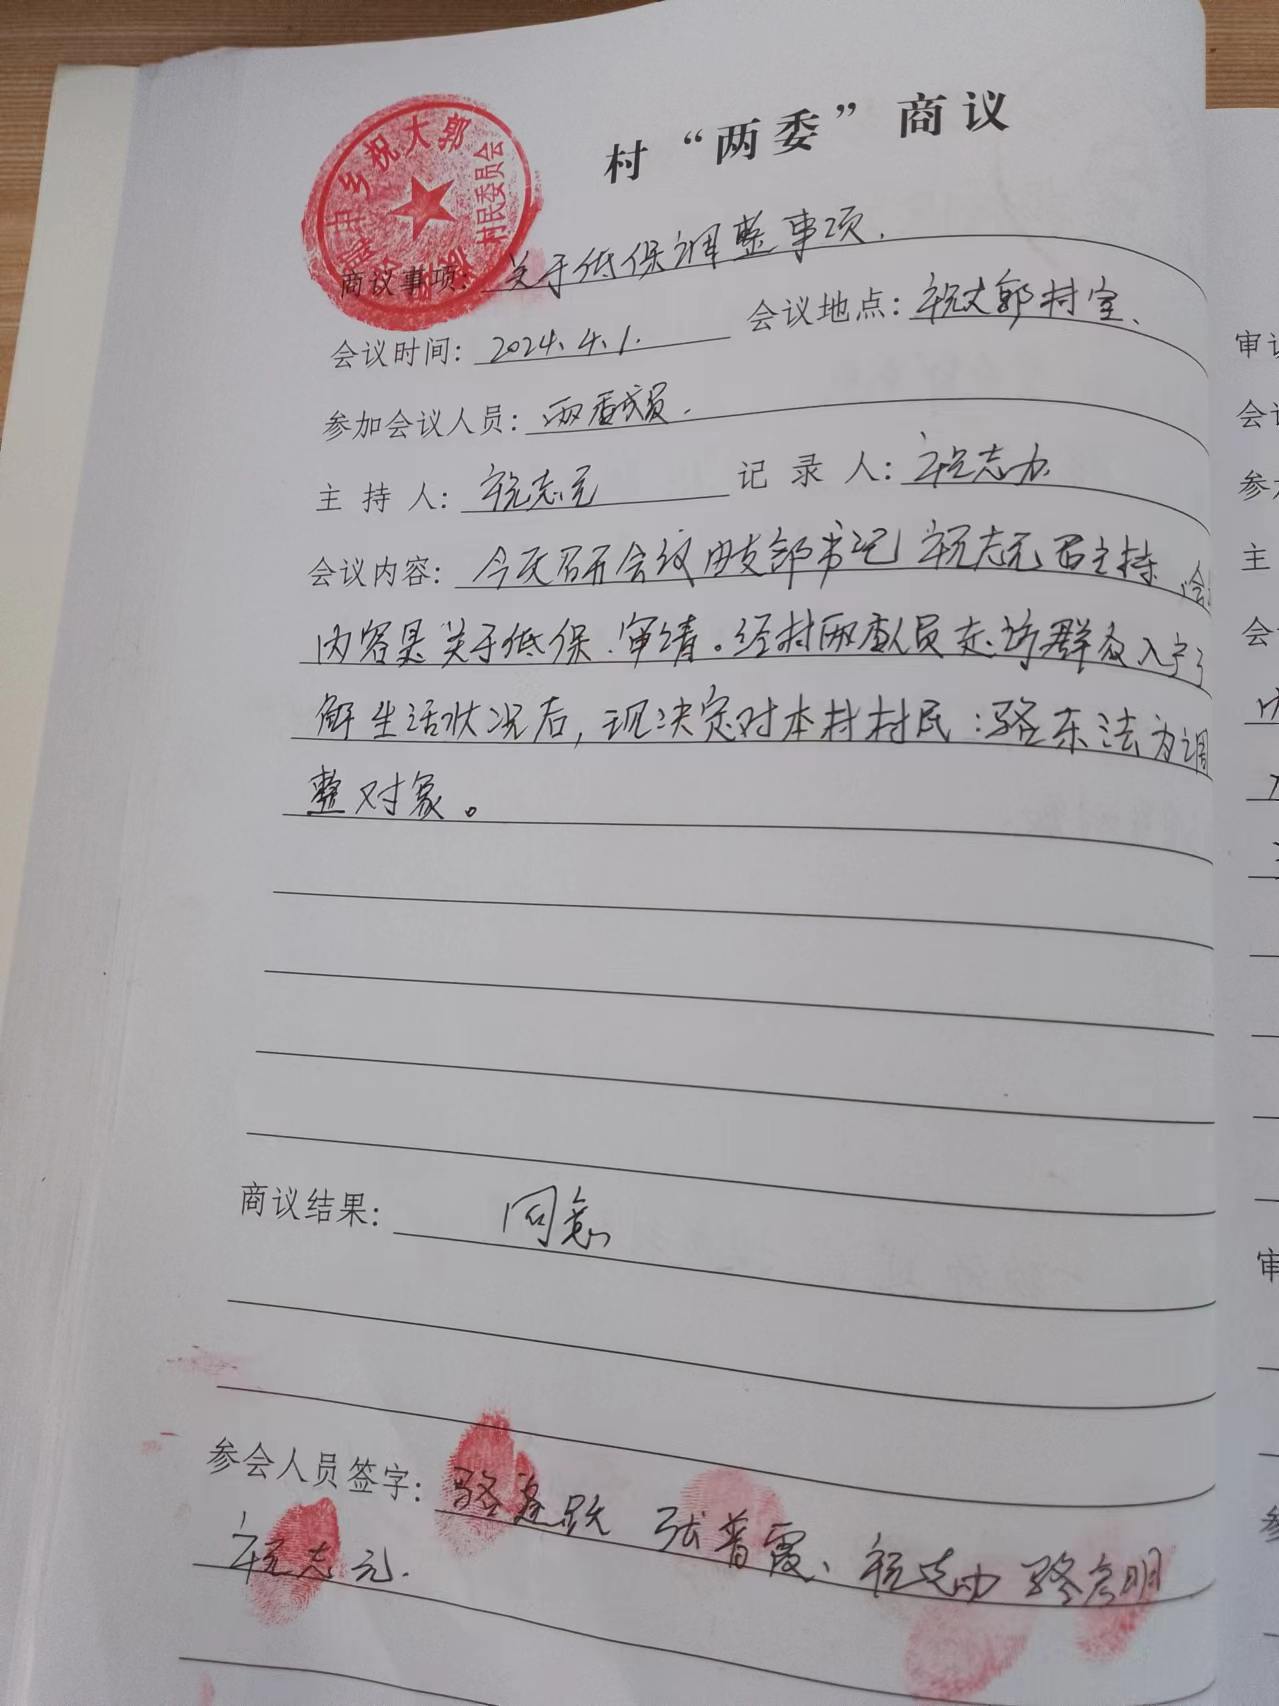 村“两委”商议
祝大郭
村民委员会
商议事项：关于低保调整事项.
会议时间：2024.4.1. 会议地点：祝大郭村室、
参加会议人员：两委成员.
主持人：祝志元 记录人：祝志力
会议内容：今天召开会议由支部书记祝志元同志主持
内容是关于低保.审请。经村两委人员走访群众入户了
解生活状况后，现决定对本村村民：骆东法为调
整对象。
商议结果：同意
参会人员签字：骆 跃 张普霞、祝志力 骆会明
祝志元.
审议
会议
参加
主
会
审
参